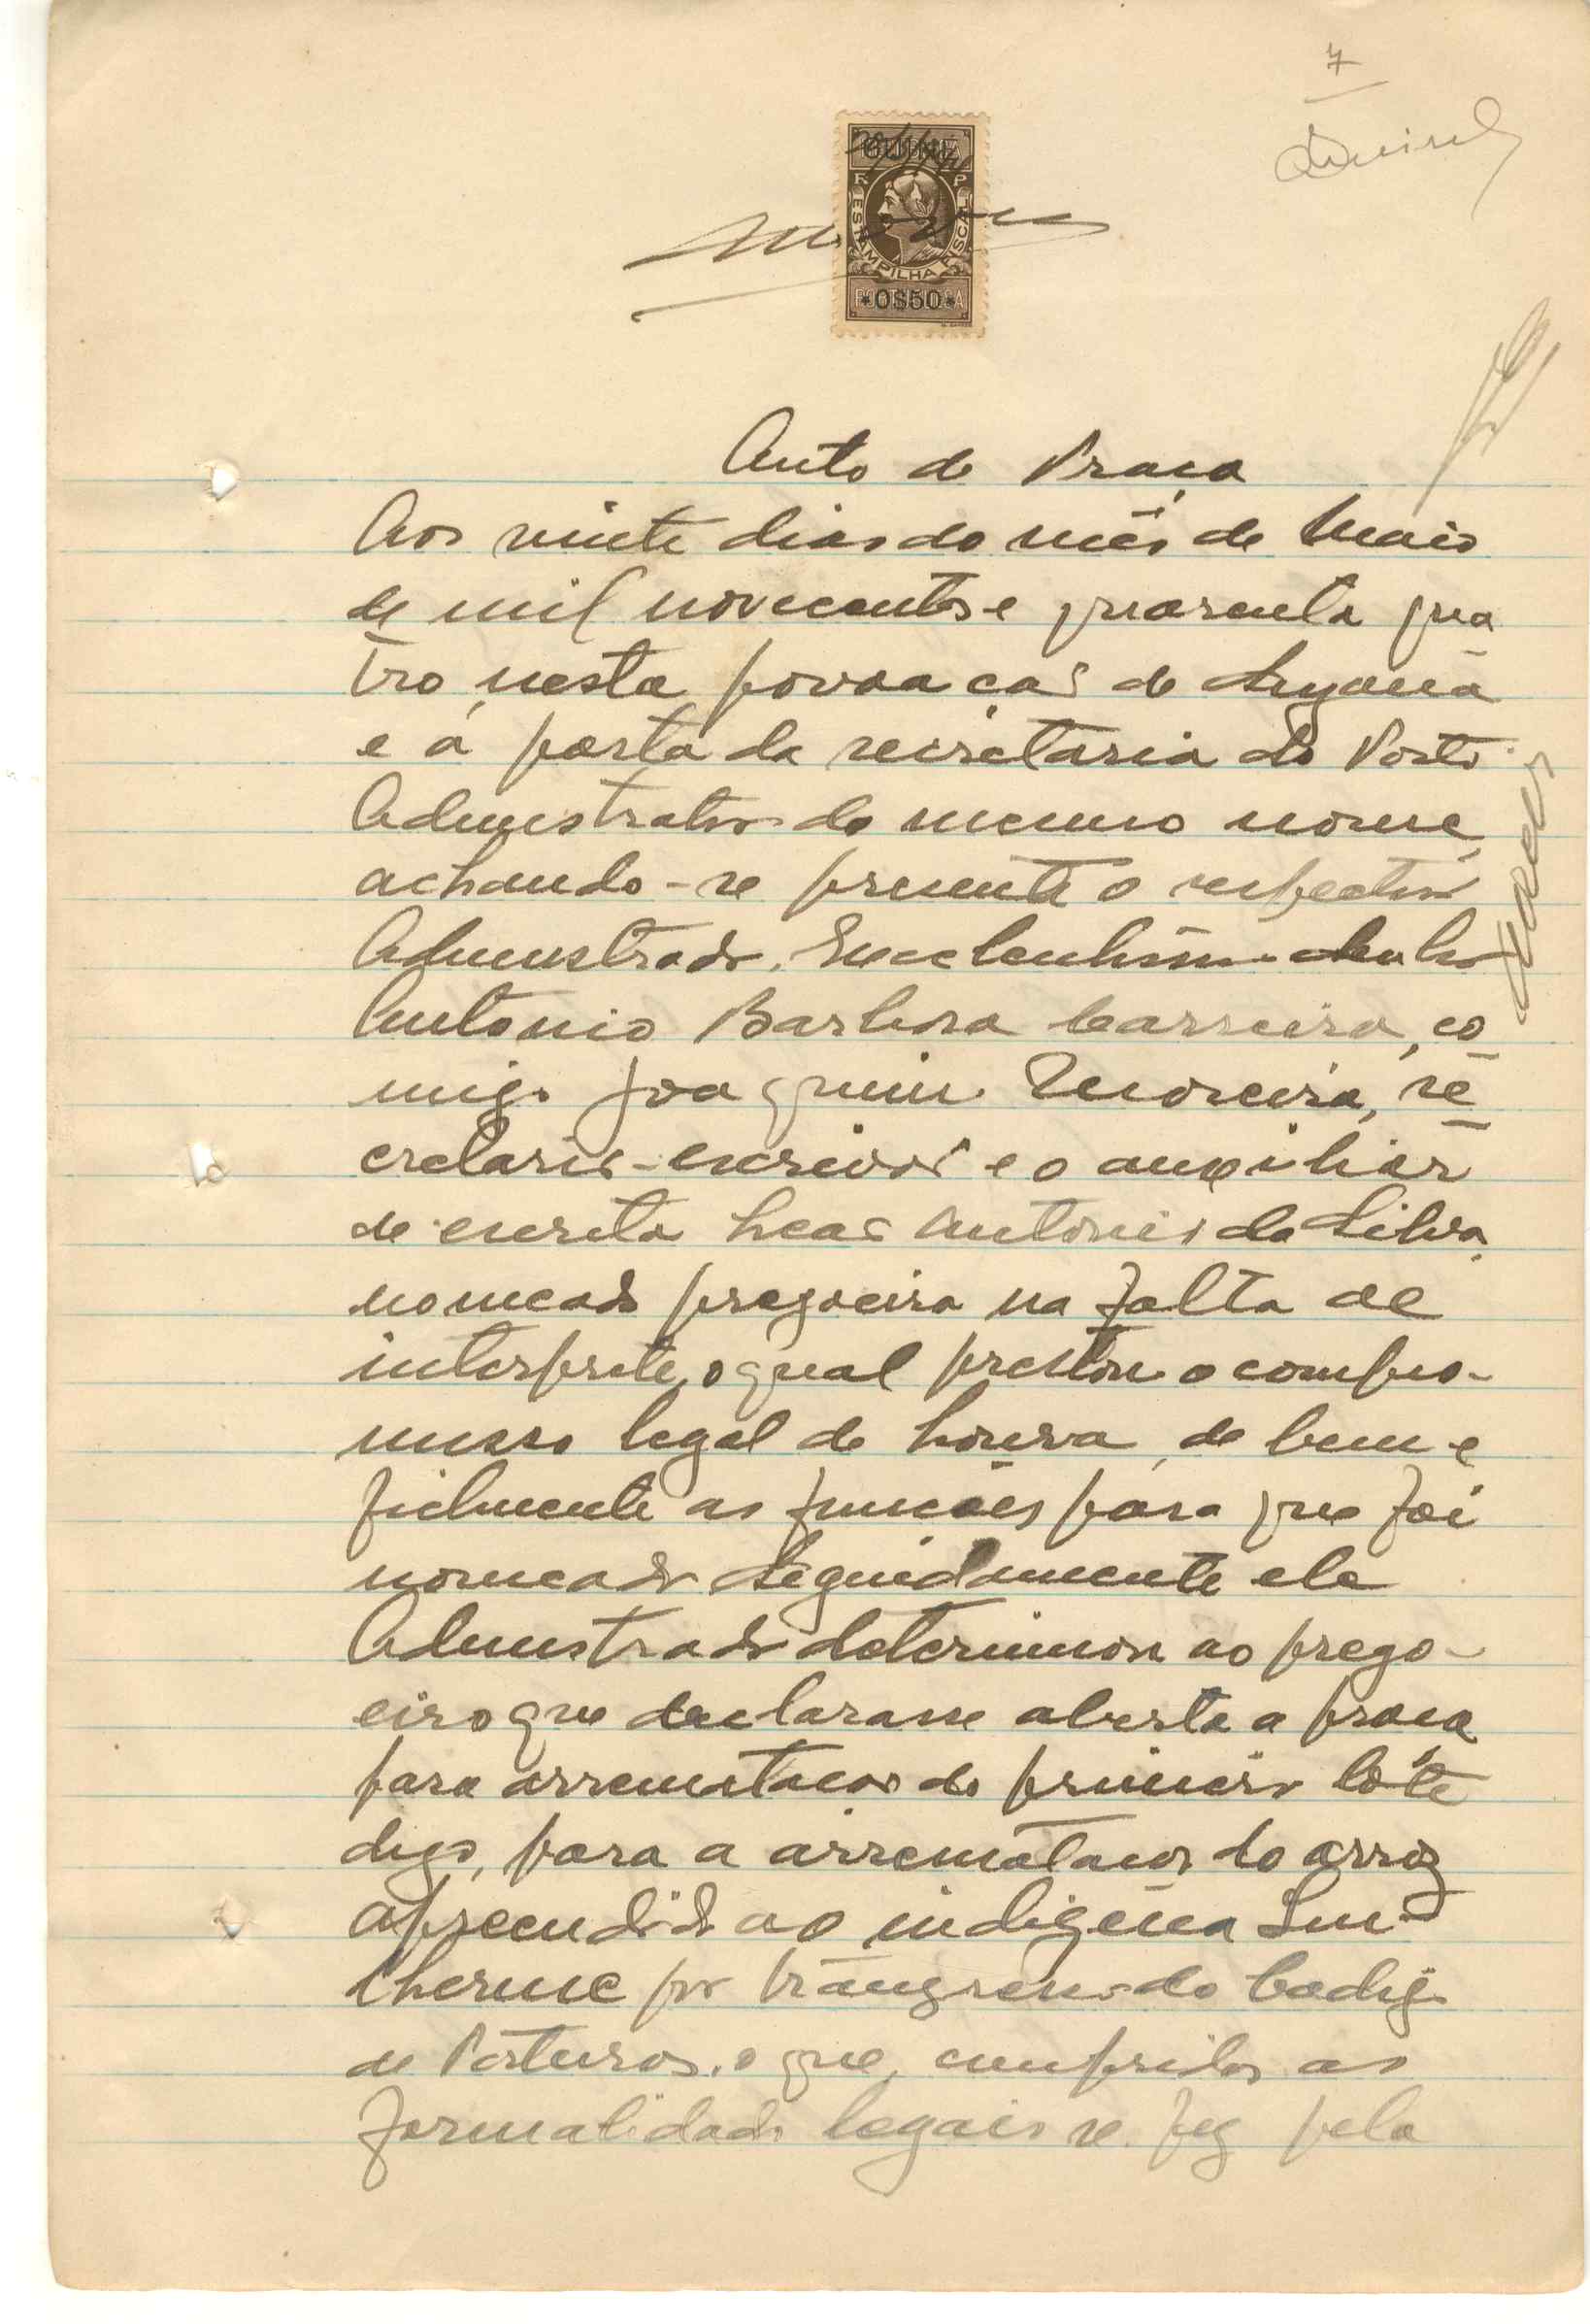 7
GUINÉ
R P
ESTAMPILHA FISCAL
*0$50*
Auto de Praça
Aos vinte dias do mês de Maio
de mil novecentos e quarenta qua
tro, nesta povoação de
e á porta da secretaria do Posto
Admnistrativo do mesmo nome,
achando-se presente o respectivo
Admnistrador, Excelentissimo Senhor
António Barbosa Carreira, co
migo Joaquim Moreira, se
cretario-escrivão e o auxiliar
de escrita Leão Antonio da Silva,
nomeado pregoeiro na falta de
interprete, o qual prestou o compro-
misso legal de honra, de bem e
fielmente as funções para que foi
nomeado Seguidamente ele
Admnistrador determinou ao prego-
eiro que declarasse aberta a praça
para arrematação do primeiro lóte
digo, para a arrematação do arroz
apreendido ao indigéna
por do Codigo
de Posturas, o que, cumpridas as
formalidades legais se fez pela